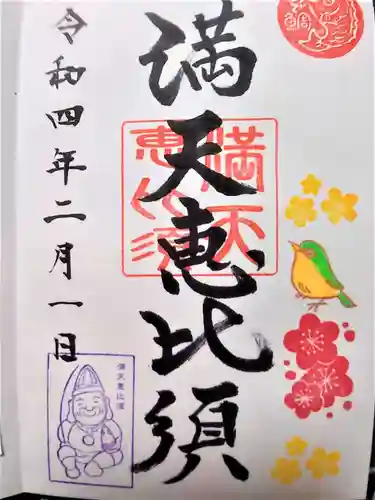 満天恵比須
満天
恵比須
令和四年二月一日
満天恵比須